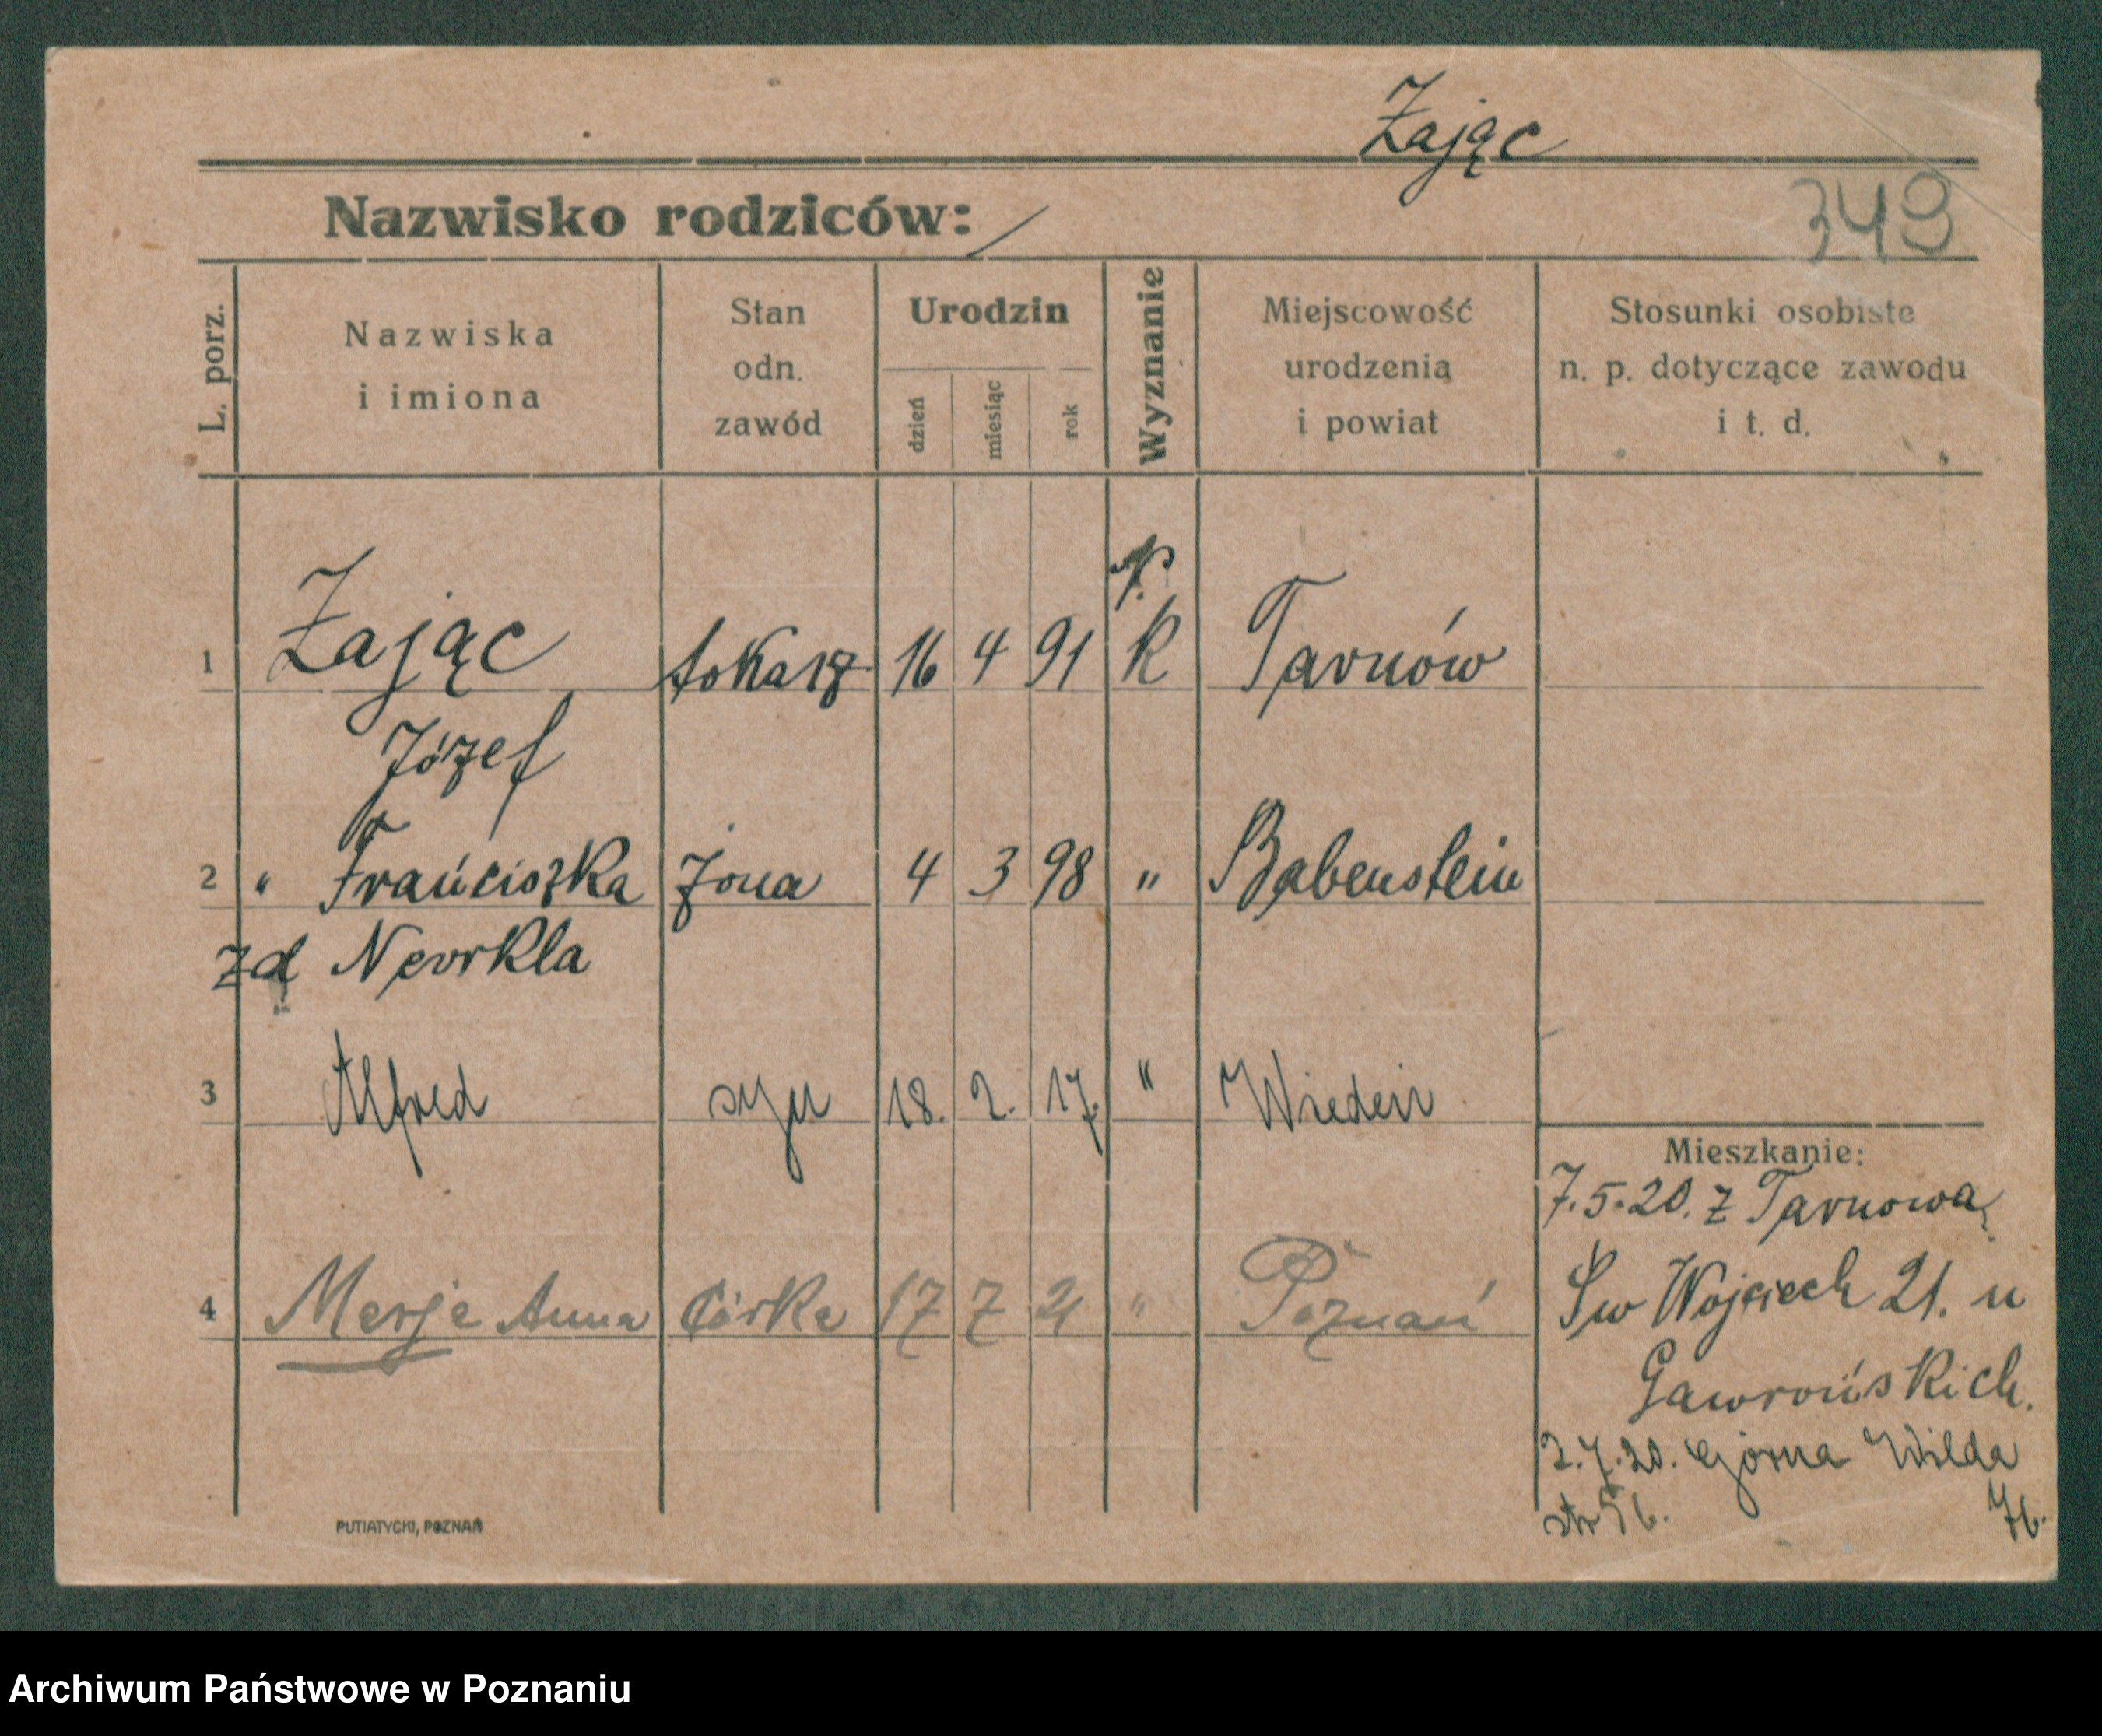 Zając
Nazwisko rodziców: /
349
L. porz.
Nazwiska i imiona
Stan odn. zawód
Urodzin
dzień miesiąc rok
Wyznanie
Miejscowość urodzenia i powiat
Stosunki osobiste n. p. dotyczące zawodu i t. d.
r.
1 Zając tokarz 16 4 91 k Tarnów
Józef
2 " Franciszka żona 4 3 98 " Babenstein
zd Neorkla
3 Alfred syn 18. 2. 17. " Wiedeń
4 Marja Anna Córka 17 7 21 " Poznań
Mieszkanie:
7.5.20. z Tarnowa
Św Wojciech 21. u
Gawrońskich.
2.7.20. Górna Wilda
76.
PUTIATYCKI, POZNAŃ
Archiwum Państwowe w Poznaniu